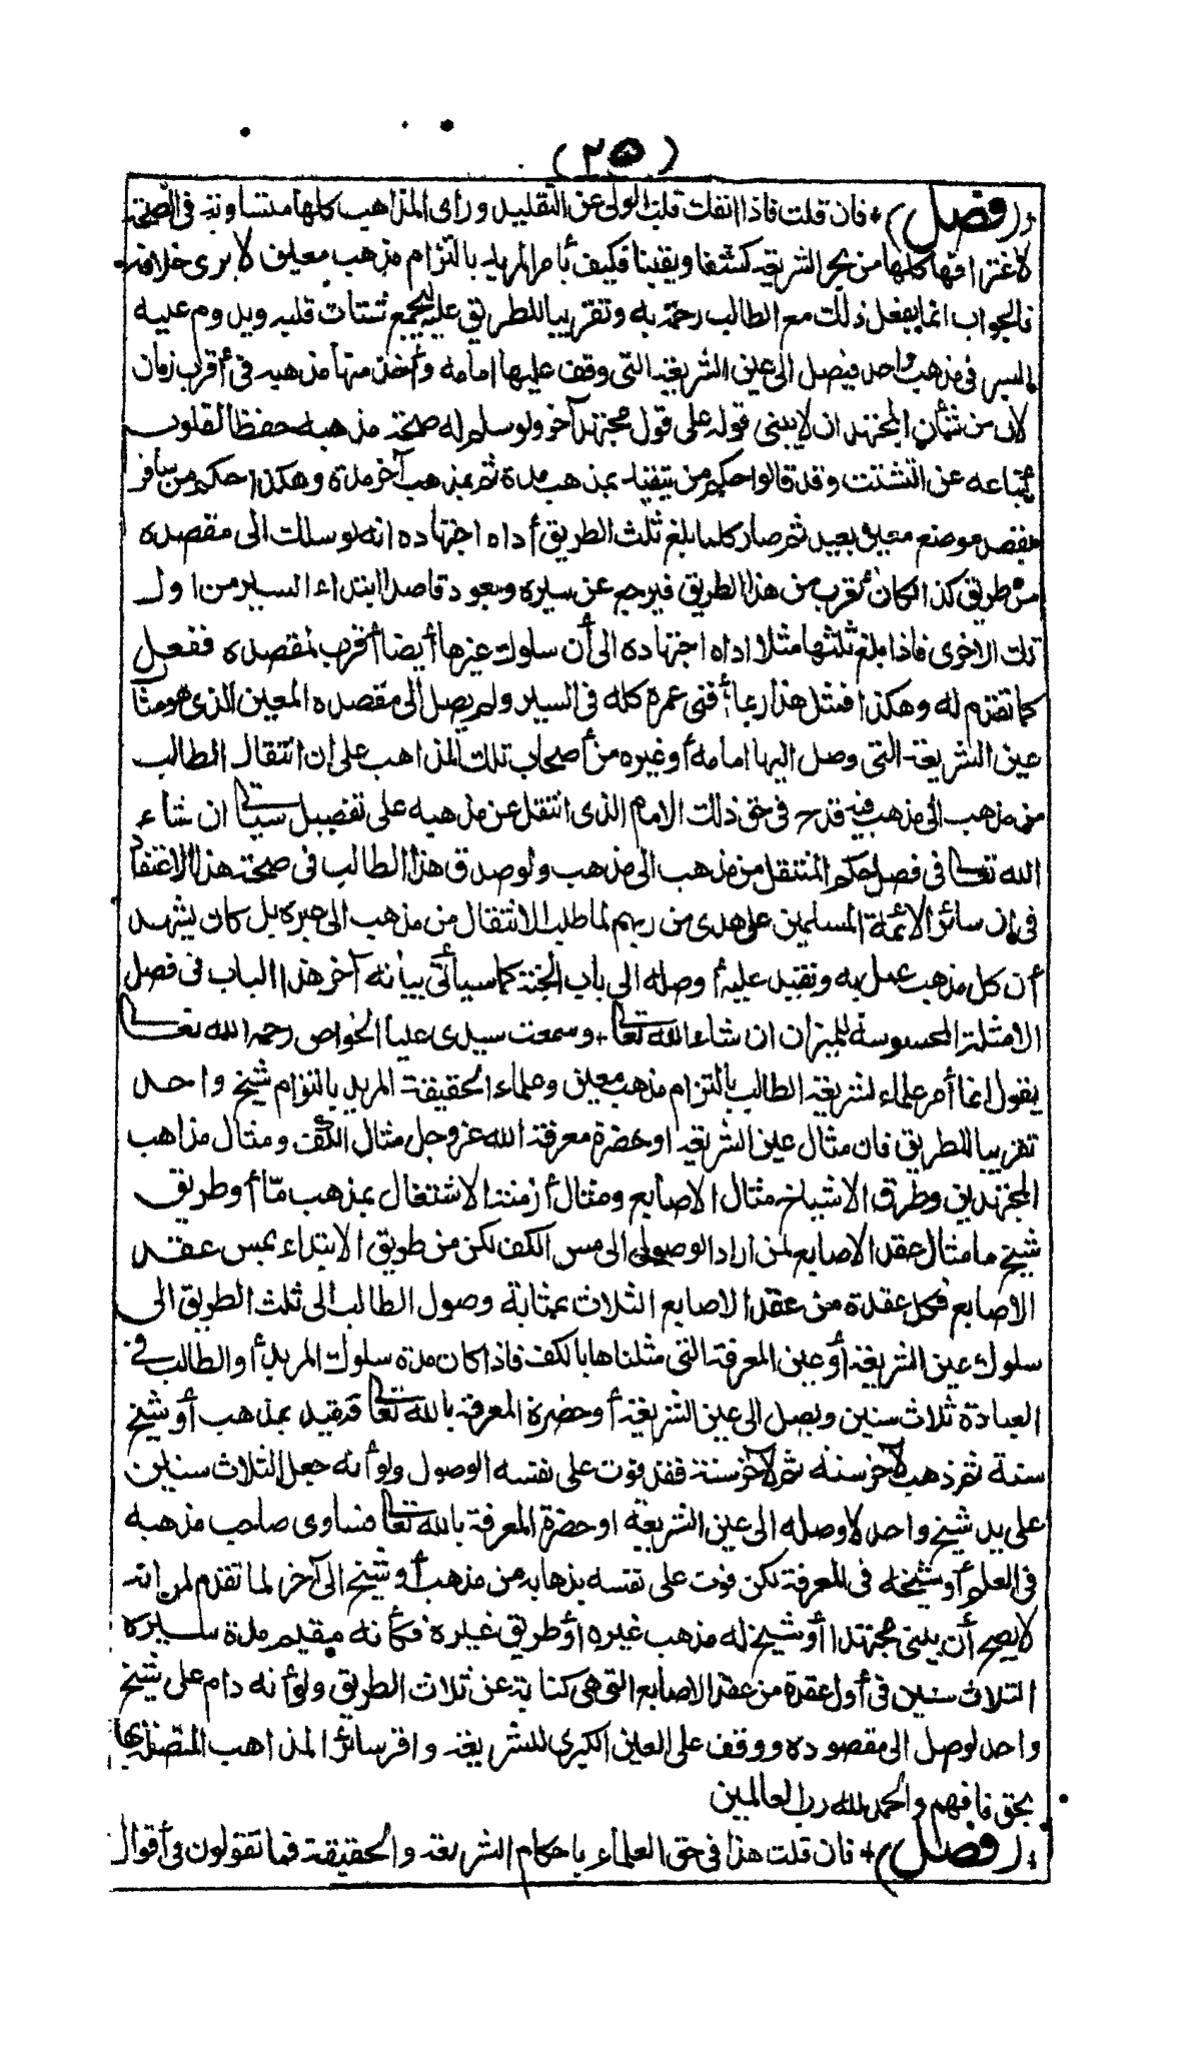 (٢٥)
(فصل) فان قلت فاذا انفك قلب الولى عن التقليد ورأى المذاهب كلها متساوية فى الصحة
لاغترافها كلها من بحر الشريعة كشفا ويقينا فكيف يأمر المريد بالتزام مذهب معين لا يرى خلافه
فالجواب انما يفعل ذلك مع الطالب رحمة به وتقريبا للطريق عليه ليجمع شتات قلبه ويدوم عليه
السير فى مذهب واحد فيصل الى عين الشريعة التى وقف عليها امامه وأخذ منها مذهبه فى أقرب زمان
لان من شأن المجتهد ان لا يبنى قوله على قول مجتهد آخر ولو سلم له صحة مذهبه حفظا لقلوب
أتباعه عن التشتت وقد قالوا حكم من يتقيد بمذهب مدة ثم بمذهب آخر مدة وهكذا حكم من سافر
يقصد موضع معين بعيد ثم صار كلما بلغ ثلث الطريق أداه اجتهاده انه لو سلك الى مقصده
من طريق كذا لكان أقرب من هذا الطريق فيرجع عن سيره ويعود قاصدا ابتداء السير من اول
تلك الاخرى فاذا بلغ ثلثها مثلا اداه اجتهاده الى أن سلوك غيرها أيضا أقرب لمقصده ففعل
كما تقدم له وهكذا فمثل هذا ربما أفنى عمره كله فى السير ولم يصل الى مقصده المعين الذى هو مثال
عين الشريعة التى وصل اليها امامه أو غيره من أصحاب تلك المذاهب على ان انتقال الطالب
من مذهب الى مذهب فيه قدح فى حق ذلك الامام الذى انتقل عن مذهبه على تفصيل سيأتى ان شاء
الله تعالى فى فصل حكم المنتقل من مذهب الى مذهب ولو صدق هذا الطالب فى صحة هذا الاعتقاد
فى ان سائر الائمة المسلمين على هدى من ربهم لما طلب الانتقال من مذهب الى غيره بل كان يشهد
أن كل مذهب عمل به وتقيد عليه أوصله الى باب الجنة كما سيأتى بيانه آخر هذا الباب فى فصل
الامثلة المحسوسة للميزان ان شاء الله تعالى وسمعت سيدى عليا الخواص رحمه الله تعالى
يقول انما أمر علماء الشريعة الطالب بالتزام مذهب معين وعلماء الحقيقة المريد بالتزام شيخ واحد
تقريبا للطريق فان مثال عين الشريعة او حضرة معرفة الله عز وجل مثال الكف ومثال مذاهب
المجتهدين وطرق الاشياخ مثال الاصابع ومثال أزمنة الاشتغال بمذهب مّا أو طريق
شيخ ما مثال عقد الاصابع لمن اراد الوصول الى مس الكف لكن من طريق الابتداء بمس عقد
الاصابع فكل عقدة من عقد الاصابع الثلاث بمثابة وصول الطالب الى ثلث الطريق الى
سلوك عين الشريعة أو عين المعرفة التى مثلناها بالكف فاذا كان مدة سلوك المريد أو الطالب فى
العبادة ثلاث سنين ويصل الى عين الشريعة أو حضرة المعرفة بالله تعالى فتقيد بمذهب أو شيخ
سنة ثم ذهب لآخر سنة ثم لآخر سنة فقد فوت على نفسه الوصول ولو أنه جعل الثلاث سنين
على يد شيخ واحد لاوصله الى عين الشريعة او حضرة المعرفة بالله تعالى فساوى صاحب مذهبه
فى العلم أو شيخه فى المعرفة لكن فوت على نفسه بذهابه من مذهب أو شيخ الى آخر لما تقدم من انه
لا يصح أن يبنى مجتهد أو شيخ له مذهب غيره أو طريق غيره فكأنه مقيم مدة سيره
الثلاث سنين فى أول عقدة من عقد الاصابع التى هى كناية عن ثلاث الطريق ولو أنه دام على شيخ
واحد لوصل الى مقصوده ووقف على العين الكبرى للشريعة واقر سائر المذاهب المتصلة بها
بحق فافهم والحمد لله رب العالمين
(فصل) فان قلت هذا فى حق العلماء باحكام الشريعة والحقيقة فما تقولون فى أقوال